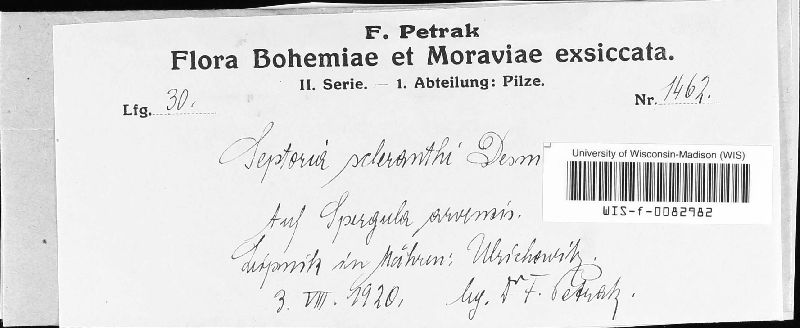 F. Petrak
Flora Bohemiae et Moraviae exsiccata.
II. Serie. — 1. Abteilung: Pilze.
Lfg. 30.
Nr. 1462.
Septoria scleranthi Desm
University of Wisconsin-Madison (WIS)
WIS-f-0082982
Auf Spergula arvensis.
in Mähren:
3. VIII. 1920. lg. Dr F. Petrak.